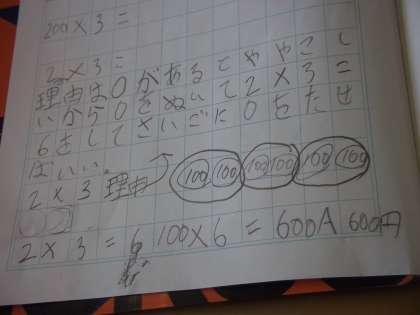 200×3=
2×3=
理由は0があるとややこし
いから0をぬいて2×3=
6をしてさいごに0をたせ
ばいい。
2×3理由
100 100 100 100 100 100
2×3=6 100×6=600A 600円